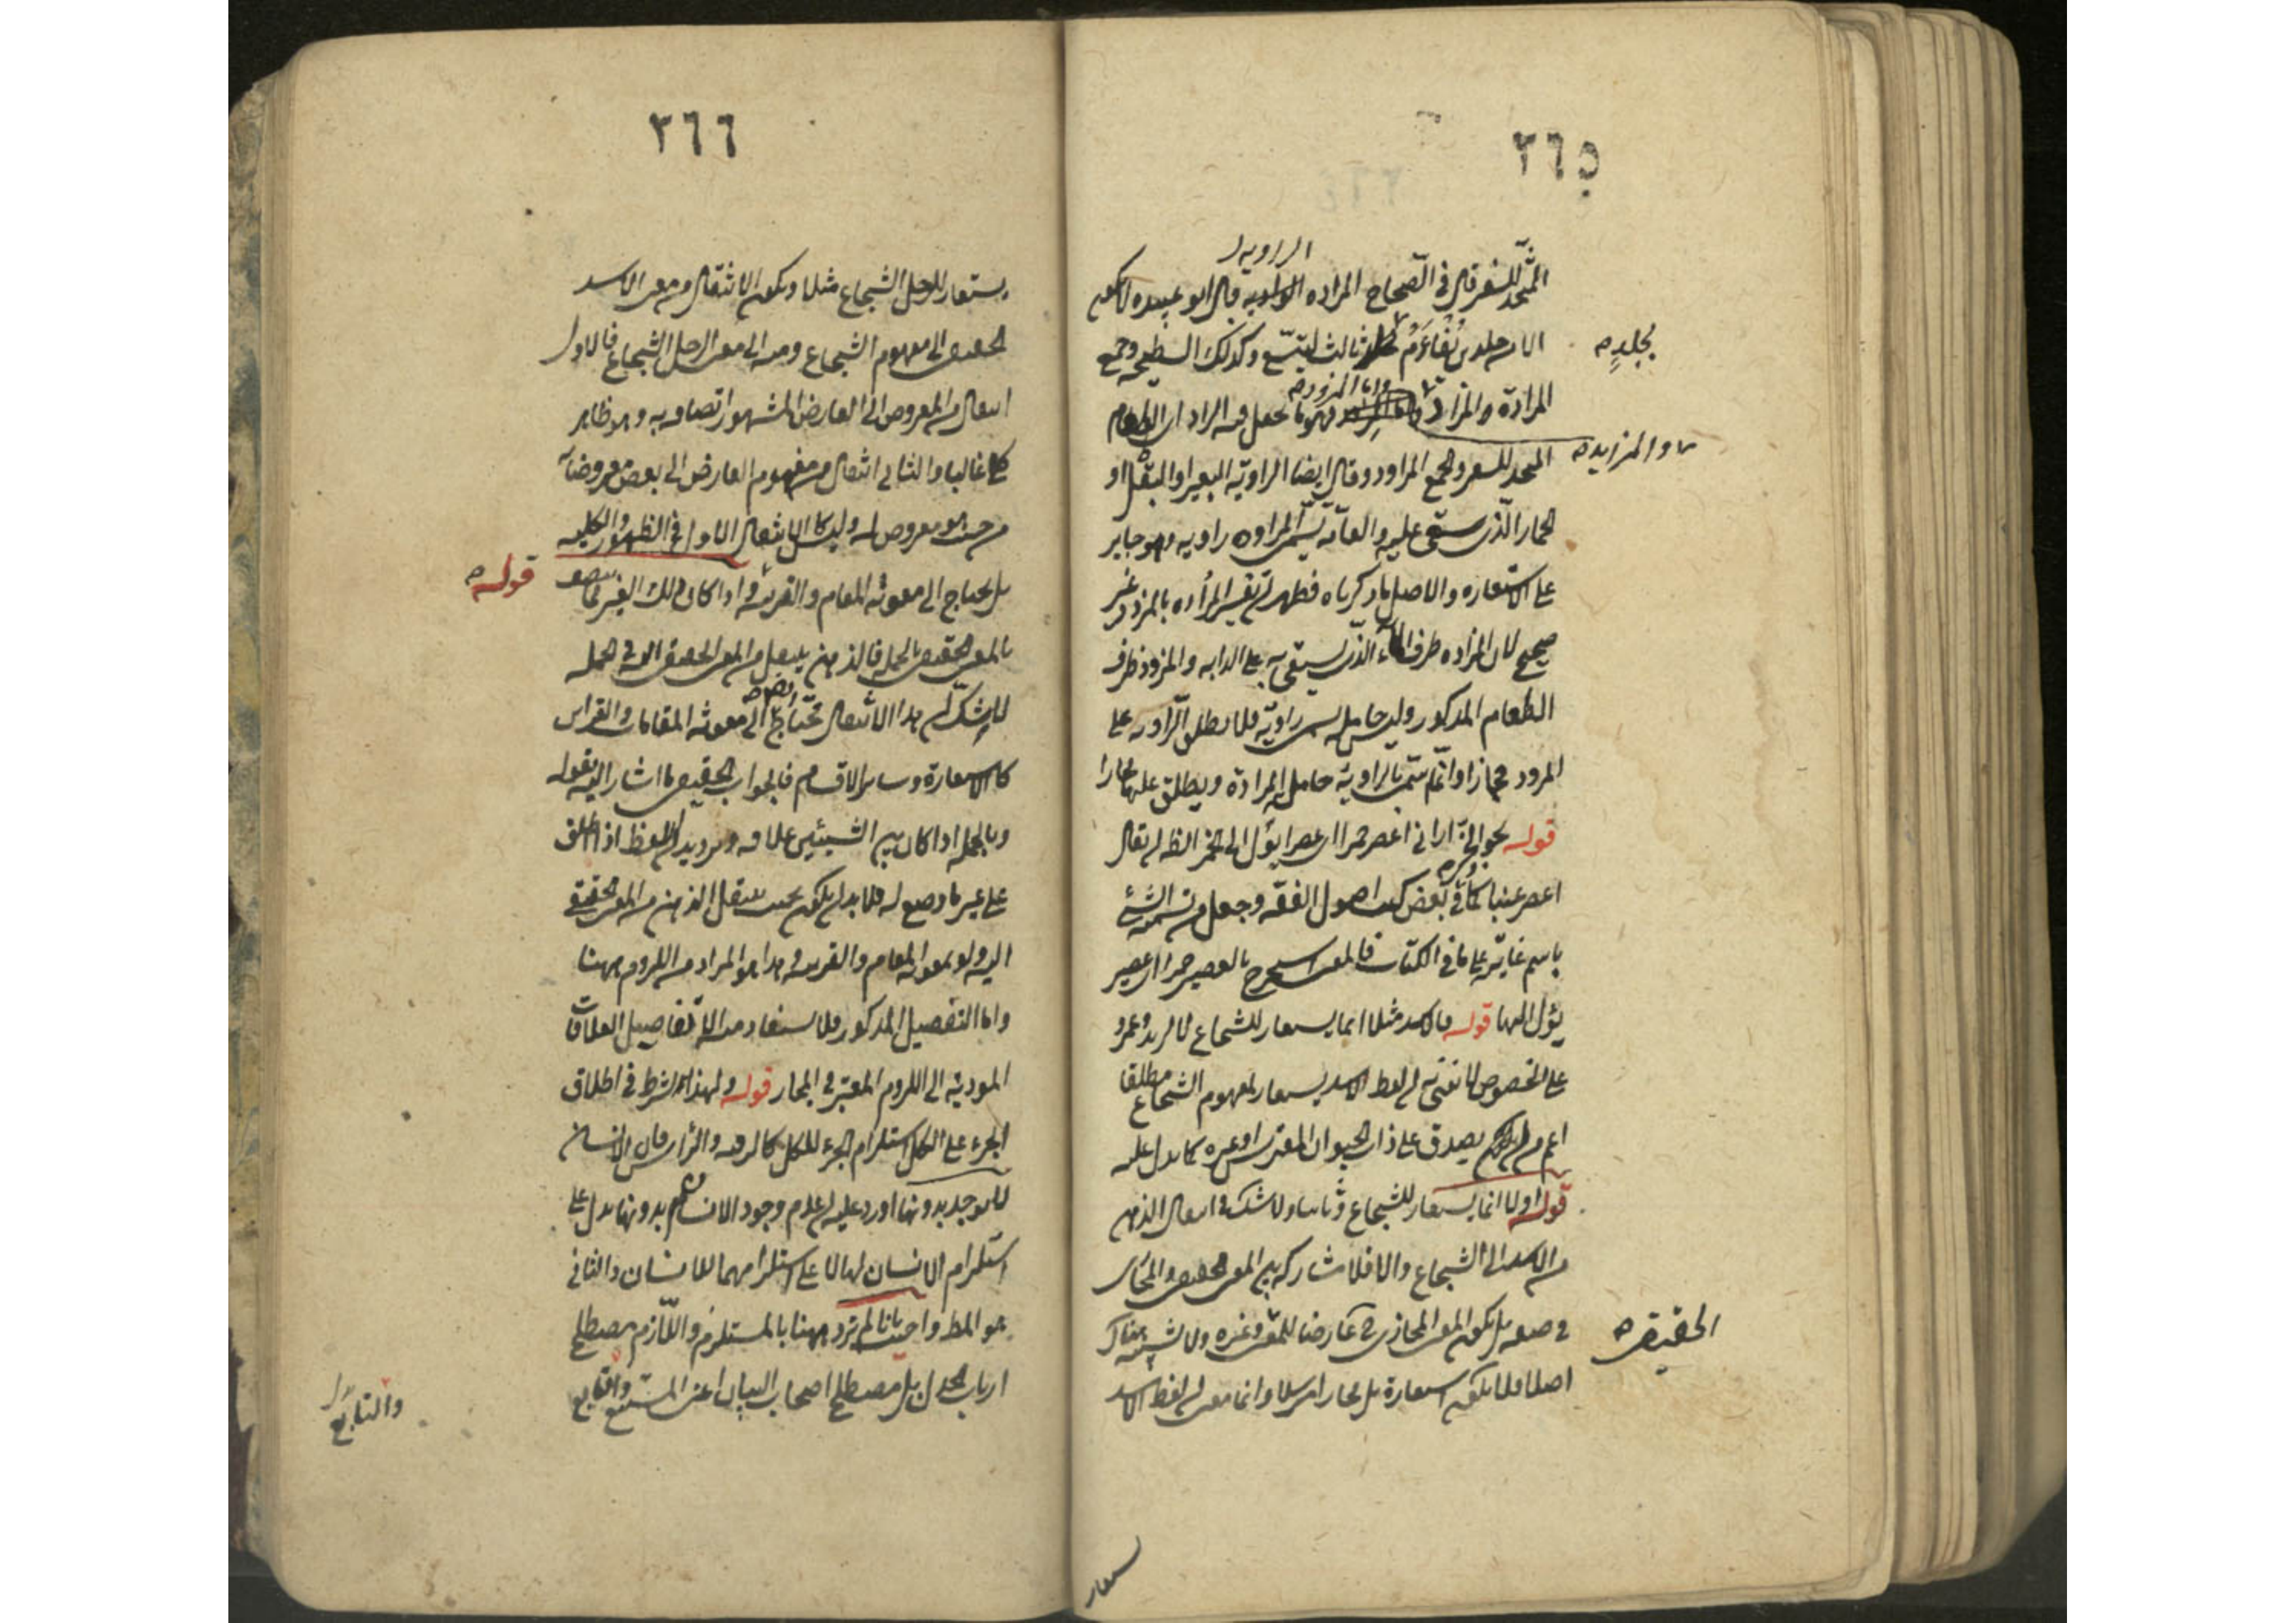 ٣٦٥
الراويه
المتّخذ للسفر قال في الصّحاح المزاده الراويه قال ابو عبيده لا تكون
الا من جلدين تُفْأَمُ ثالث ليتّسع وكذلك السطيحه وجمع
بجلدٍ صح
المزادة والمزاد فهو ما يجعل فيه الزاد اى الطعام
واما المزود صح
والمزايد صح
المتخذ للسفر والجمع المزاود وقال ايضا الراويّه البعير او البغل او
الحمار الّذى يستقى عليه والعامّه تسمّى المزاده راويه وهو جايز
على الاستعاره والاصل ما ذكرناه فظهر ان تفسير المزاده بالمزود غير
صحيح لان المزاده ظرف الماء الّذى يستقى به على الدابه والمزود ظرف
الطعام المذكور وليس حامله يسمى راويّه فلا يطلق الرّاويه على
المزود مجازا وانّما سمّى بالراويّه حامل المزادة ويطلق عليها مجازا
قوله نحو انّى ارانى اعصر خمرا اى عصيرا يؤل الى الخمر الظ ان يقال
اعصر عنبا كما ذكره فى بعض كتب اصول الفقه وجعل من تسمية الشئ
باسم غايته على ما في الكتاب فالمعنى استخرج بالعصير خمرا اى عصير
يؤل اليها قوله فالاسد مثلا انما يستعار للشجاع لا لزيد وعمرو
على الخصوص لا نعنى به ان لفظ الاسد يستعار لمفهوم الشجاع مطلقا
اعم من ان يصدق على ذات الحيوان المفترس او غيره كما يدل عليه
قوله اولا انما يستعار للشجاع وثانيا ولا شك في انتقال الذهن
من الاسد الى الشجاع والا فلا مشاركه بين المعنى الحقيقى والمجازى
في صفه بل يكون المعنى المجازى ح عارضا للمعنى وغيره ولا تشبيه هناك
الحقيقى صح
اصلا فلا يكون استعارة بل مجازا مرسلا وانما معنى ان لفظ الاسد
يستعار
٣٦٦
يستعار للرجل الشجاع مثلا ويكون الانتقال من معنى الاسد
الحقيقى الى مفهوم الشجاع ومنه الى معنى الرجل الشجاع فالاول
انتقال من المعروض الى العارض المشهور اتصافه به وهو ظاهر
كلى غالبا والثانى انتقال من مفهوم العارض الى بعض معروضاته
من حيث هو معروض له وليس كالانتقال الاول فى الظهور والكليه
بل يحتاج الى معونة المقام والقرينه اذا كان ذلك الغير
قوله صح
بالمعنى الحقيقى بالجمله فالذهن ينتقل من المعنى الحقيقى اليه في الجمله
لا شكّ ان هذا الانتقال محتاج ايضا الى معونة المقامات والقراين
كالاستعارة وساير الاقسام فالجواب الحقيقى ما اشار اليه بقوله
وبالجمله اذا كان بين الشيئين علاقه اللفظ اذا اطلق
على غير ما وضع له فلا بد ان يكون بحيث ينتقل الذهن من المعنى الحقيقى
اليه ولو بمعونه المقام والقرينه وهذا هو المراد من اللزوم ههنا
واما التفصيل المذكور فلا يستفاد منه الا تفاصيل العلاقات
المودية الى اللزوم المعتبر في المجاز قوله ولهذا اشترط في اطلاق
الجزء على الكل استلزام الجزء للكل كالرقبه والرأس فان الانسان
لا يوجد بدونها اورد عليه ان عدم وجود الانسان بدونها يدل على
استلزام الانسان لها لا على استلزامهما للانسان والثانى
هو المط واجيب بانا لم نرد ههنا بالمستلزم واللّازم مصطلح
ارباب الجدل بل مصطلح اصحاب البيان اعنى المستتبع والتابع
والتابع